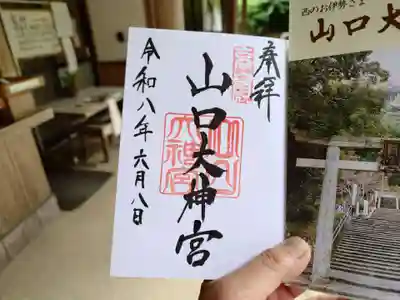 奉拝
山口大神宮
令和八年六月八日
西のお伊勢さま
山口大